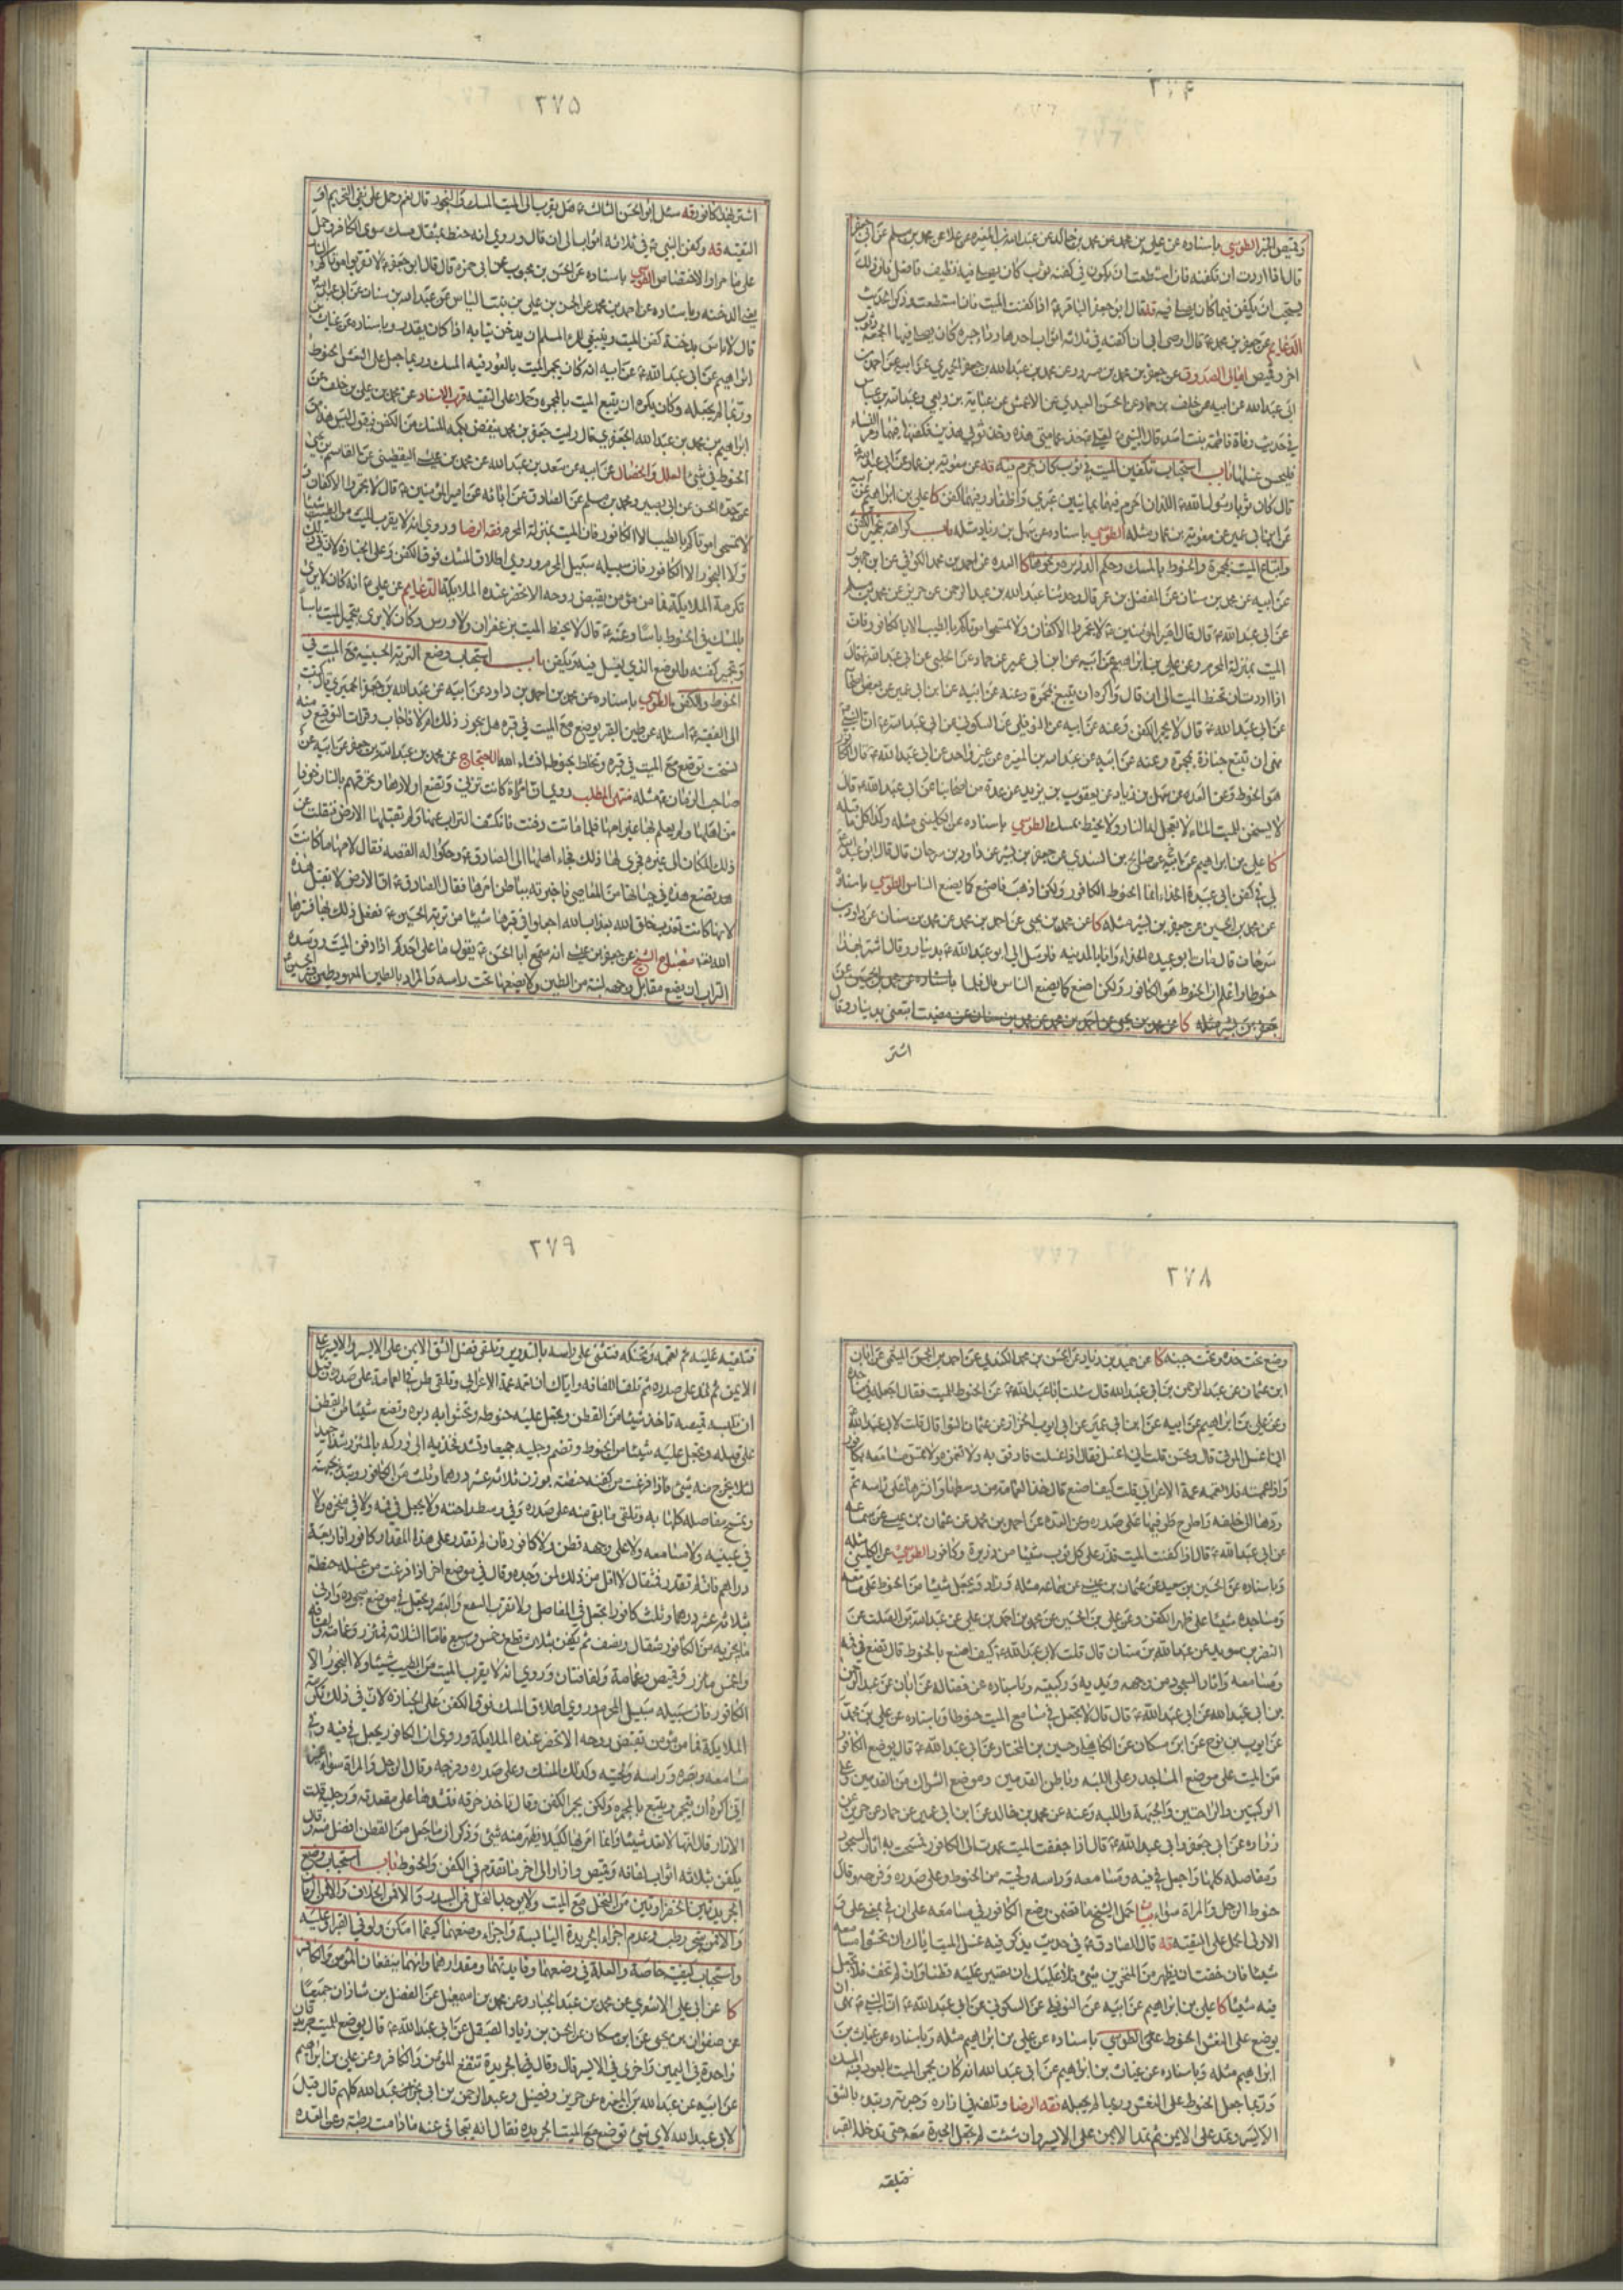 ٢٧٤
وقميص الخبر الطوسي باسناده عن علي بن محمد عن محمد بن خالد عن عبد الله بن المغيرة عن علا عن محمد بن مسلم عن ابي جعفر
قال اذا اردت ان تكفنه فان استطعت ان يكون في كفنه ثوب كان يصلي فيه نظيف فافعل فان ذلك
يستحب ان يكفن فيما كان يصلي فيه قه قال ابو جعفر الباقر ع اذا كفنت الميت فان استطعت وذكر الحديث
الدعايم عن جعفر بن محمد ع قال اوصى ابي ان اكفنه في ثلاثة اثواب احدها رداء حبرة كان يصلي فيها الجمعة وثوب
اخر وقميص امالي الصدوق عن جعفر بن محمد بن مسرور عن محمد بن عبد الله بن جعفر الحميري عن ابيه عن احمد بن
ابي عبد الله عن ابيه عن خلف بن حماد عن الحسن العبدي عن الاعمش عن عباية بن ربعي وعبد الله بن عباس
في حديث وفاة فاطمة بنت اسد قال النبي ع لعلي خذ عمامتي هذه وخذ ثوبي هذين فكفنها فيهما ومر النساء
فليحسن غسلها باب استحباب تكفين الميت في ثوب كان يحرم فيه قه عن معوية بن عمار عن ابي عبد الله ع
قال كان ثوبا رسول الله ع اللذان احرم فيهما يمانيين عبري واظفار وفيهما كفن كا علي بن ابراهيم عن ابيه
عن ابن ابي عمير عن معوية بن عمار مثله الطوسي باسناده عن سهل بن زياد مثله باب كراهة تجمير الكفن
واتباع الميت بمجمرة والحنوط بالمسك وحكم الذريرة ونحوها كا العدة عن احمد بن محمد الكوفي عن ابن جمهور
عن ابيه عن محمد بن سنان عن المفضل بن عمر قال وحدثنا عبد الله بن عبد الرحمن عن حريز عن محمد بن مسلم
عن ابي عبد الله ع قال قال امير المؤمنين ع لا تجمروا الاكفان ولا تمسحوا موتاكم بالطيب الا بالكافور فان
الميت بمنزلة المحرم وعن علي بن ابراهيم عن ابيه عن ابن ابي عمير عن حماد عن الحلبي عن ابي عبد الله ع قال
اذا اردت ان تحنط الميت الى ان قال واكره ان يتبع بمجمرة وعنه عن ابيه عن ابن ابي عمير عن بعض اصحابنا
عن ابي عبد الله ع قال لا يجمر الكفن وعنه عن ابيه عن النوفلي عن السكوني عن ابي عبد الله ع ان النبي ع
نهى ان تتبع جنازة بمجمرة وعنه عن ابيه عن عبد الله بن المغيرة عن غير واحد عن ابي عبد الله ع قال الكافور
هو الحنوط وعن العدة عن سهل بن زياد عن يعقوب بن يزيد عن عدة من اصحابنا عن ابي عبد الله ع قال
لا يسخن للميت الماء لا تعجل له النار ولا يحنط بمسك الطوسي باسناده عن الكليني مثله وكذا كل ما قبله
كا علي بن ابراهيم عن ابيه عن صالح بن السندي عن جعفر بن بشير عن داود بن سرحان قال قال ابو عبد الله ع
لي في كفن ابي عبيدة الحذاء انما الحنوط الكافور ولكن اذهب فاصنع كما يصنع الناس الطوسي باسناده
عن محمد بن الحسين عن جعفر بن بشير مثله كا عن محمد بن يحيى عن احمد بن محمد عن محمد بن سنان عن داود بن
سرحان قال مات ابو عبيدة الحذاء وانا بالمدينة فارسل الي ابو عبد الله ع بدينار وقال اشتر بهذا
حنوطا واعلم ان الحنوط هو الكافور ولكن اصنع كما يصنع الناس قال فلما
مضيت اتبعني بدينار وقال
اشتر
٢٧٥
اشتر بهذا كافورا قه سئل ابو الحسن الثالث ع هل يقرب الى الميت المسك والبخور قال نعم وحمل على نفي التحريم او
التقية قه وكفن النبي ع في ثلاثة اثواب الى ان قال وروي انه حنط بمثقال مسك سوى الكافور وحمل
باسناده عن الحسن بن محبوب عن ابي حمزة قال قال ابو جعفر ع لا تقربوا موتاكم النار
يعني الدخنة وباسناده عن احمد بن محمد عن الحسن بن علي بن بنت الياس عن عبد الله بن سنان عن ابي عبد الله ع
قال لا باس بدخنة كفن الميت وينبغي للمرء المسلم ان يدخن ثيابه اذا كان يقدر وباسناده عن غياث بن
ابراهيم عن ابي عبد الله ع عن ابيه انه كان يجمر الميت بالعود فيه المسك وربما جعل على النعش الحنوط
وربما لم يجعله وكان يكره ان يتبع الميت بالمجمرة وحملا على التقية قرب الاسناد عن محمد بن علي بن خلف عن
ابراهيم بن محمد بن عبد الله الجعفري قال رايت جعفر بن محمد ينفض بكمه المسك عن الكفن ويقول ليس هذا من
الحنوط في شيئ العلل والخصال عن ابيه عن سعد بن عبد الله عن محمد بن عيسى اليقطيني عن القاسم بن يحيى
عن جده الحسن عن ابي بصير ومحمد بن مسلم عن الصادق عن ابائه عن امير المؤمنين ع قال لا تجمروا الاكفان و
لا تمسحوا موتاكم بالطيب الا الكافور فان الميت بمنزلة المحرم فقه الرضا وروي انه لا يقرب الميت من الطيب شيئا
ولا البخور الا الكافور فان سبيله سبيل المحرم وروي اطلاق المسك فوق الكفن وعلى الجنازة لان في ذلك
تكرمة الملايكة فما من مؤمن يقبض روحه الا تحضر عنده الملايكة الدعايم عن علي ع انه كان لا يرى
بالمسك في الحنوط باسا وعنه ع قال لا يحنط الميت بزعفران ولا ورس وكان لا يرى بتجمير الميت باسا
وتجمير كفنه والموضع الذي يغسل فيه ويكفن باب استحباب وضع التربة الحسينية مع الميت في
الحنوط والكفن الطوسي باسناده عن محمد بن احمد بن داود عن ابيه عن عبد الله بن جعفر الحميري قال كتبت
الى الفقيه ع اسئله عن طين القبر يوضع مع الميت في قبره هل يجوز ذلك ام لا فاجاب وقرات التوقيع ومنه
نسخت توضع مع الميت في قبره وتخلط بحنوطه انشاء الله الاحتجاج عن محمد بن عبد الله بن جعفر عن ابيه عن
صاحب الزمان ع مثله منتهى المطلب روي ان امراة كانت تزني وتضع اولادها وتحرقهم بالنار خوفا
من اهلها ولم يعلم بها غير امها فلما ماتت دفنت فانكشف التراب عنها ولم تقبلها الارض فنقلت عن
ذلك المكان الى غيره فجرى لها ذلك فجاء اهلها الى الصادق ع وحكوا له القصة فقال لامها ما كانت
تصنع هذه في حياتها من المعاصي فاخبرته بباطن امرها فقال الصادق ع ان الارض لا تقبل هذه
لانها كانت تعذب خلق الله بعذاب الله اجعلوا في قبرها شيئا من تربة الحسين ع ففعل ذلك بها فسترها
الله تعالى مصباح الشيخ عن جعفر بن عيسى انه سمع ابا الحسن ع يقول ما على احدكم اذا دفن الميت ووسده
التراب ان يضع مقابل وجهه لبنة من الطين ولا يضعها تحت راسه والمراد بالطين المعهود طين قبر الحسين ع
٢٧٨
وضع تحت خده وتحت جنبه كا عن حميد بن زياد عن الحسن بن محمد الكندي عن احمد بن الحسن الميثمي عن ابان
ابن عثمان عن عبد الرحمن بن ابي عبد الله قال سئلت ابا عبد الله ع عن الحنوط للميت فقال اجعله في مساجده
وعن علي بن ابراهيم عن ابيه عن ابن ابي عمير عن ابي ايوب الخزاز عن عثمان النوا قال قلت لابي عبد الله ع
اني اغسل الموتى قال وتحسن قلت اني اغسل فقال اذا غسلت فارفق به ولا تغمزه ولا تمس مسامعه بكافور
واذا عممته فلا تعممه عمة الاعرابي قلت كيف اصنع قال خذ العمامة من وسطها وانشرها على راسه ثم
ردها الى خلفه واطرح طرفيها على صدره وعن العدة عن احمد بن محمد عن عثمان بن عيسى عن سماعة
عن ابي عبد الله ع قال اذا كفنت الميت فذر على كل ثوب شيئا من ذريرة وكافور الطوسي عن الكليني مثله
وباسناده عن الحسين بن سعيد عن عثمان بن عيسى عن سماعة مثله وزاد وتجعل شيئا من الحنوط على مسامعه
ومساجده وشيئا على ظهر الكفن وعن علي بن الحسين عن محمد بن احمد بن علي عن عبد الله بن الصلت عن
النضر بن سويد عن عبد الله بن سنان قال قلت لابي عبد الله ع كيف اصنع بالحنوط قال تضع في فمه
ومسامعه واثار السجود من وجهه ويديه وركبتيه وباسناده عن فضالة عن ابان عن عبد الرحمن
بن ابي عبد الله عن ابي عبد الله ع قال قال لا تجعل في مسامع الميت حنوطا وباسناده عن علي بن محمد
عن ايوب بن نوح عن ابن مسكان عن الكاهلي وحسين بن المختار عن ابي عبد الله ع قال يوضع الكافور
من الميت على موضع المساجد وعلى اللبة وباطن القدمين وموضع الشراك من القدمين وعلى
الركبتين والراحتين والجبهة واللبة وعنه عن محمد بن خالد عن ابن ابي عمير عن حماد عن حريز عن
زراره عن ابي جعفر وابي عبد الله ع قال اذا جففت الميت عمدت الى الكافور فمسحت به اثار السجود
ومفاصله كلها واجعل في فيه ومسامعه وراسه ولحيته من الحنوط وعلى صدره وفرجه وقال
حنوط الرجل والمراة سواء حمل الشيخ ما تضمن وضع الكافور في مسامعه على ان في بمعنى على و
الاولى الحمل على التقية قه قال الصادق ع في حديث يذكر فيه غسل الميت اياك ان تحشو مسامعه
شيئا فان خفت ان يظهر من المنخرين شيئ فلا عليك ان تصير عليه قطنا وان لم تخف فلا تجعل
فيه شيئا كا علي بن ابراهيم عن ابيه عن النوفلي عن السكوني عن ابي عبد الله ع ان النبي ع نهى ان
يوضع على النعش الحنوط الطوسي باسناده عن علي بن ابراهيم مثله وباسناده عن غياث بن
ابراهيم مثله وباسناده عن غياث بن ابراهيم عن ابي عبد الله انه كان يجمر الميت بالعود فيه المسك
وربما جعل الحنوط على النعش وربما لم يجعله فقه الرضا وتلفه في ازاره وحبرته وتبدء بالشق
الايسر وتمد على الايمن ثم تمد الايمن على الايسر وان شئت لم تجعل الحبرة معه حتى تدخله القبر
فتلقيه
٢٧٩
فتلقيه عليه ثم تعممه وتحنكه فتثني على راسه بالتدوير وتلقي فضل الشق الايمن على الايسر والايسر على
الايمن ثم تمد على صدره ثم تلف اللفافة واياك ان تعممه عمة الاعرابي وتلقي طرفي العمامة على صدره وقبل
ان تلبسه قميصه تاخذ شيئا من القطن وتجعل عليه حنوطه وتحشو به دبره وتضع شيئا من القطن
على قبله وتجعل عليه شيئا من الحنوط وتضم رجليه جميعا وتشد فخذيه الى وركه بالمئزر شدا جيدا
لئلا يخرج منه شيئ فاذا فرغت من كفنه حنطته بوزن ثلاثة عشر درهما وثلث من الكافور وتبدء بجبهته
وتمسح مفاصله كلها به وتلقي ما بقي منه على صدره وفي وسط راحته ولا يجعل في فمه ولا في منخره ولا
في عينيه ولا مسامعه ولا على وجهه قطن ولا كافور فان لم تقدر على هذا المقدار كافورا فاربعة
دراهم فان لم تقدر فمثقال لا اقل من ذلك لمن وجده وقال في موضع اخر اذا فرغت من غسله حنطته
بثلاثة عشر درهما وثلث كافورا تجعل في المفاصل ولا تقرب السمع والبصر وتجعل في موضع سجوده وادنى
ما يجزيه من الكافور مثقال ونصف ثم يكفن بثلاث قطع وخمس وسبع فاما الثلاثة فمئزر وعمامة ولفافة
والخمس مئزر وقميص وعمامة ولفافتان وروي انه لا يقرب الميت من الطيب شيئا ولا البخور الا
الكافور فان سبيله سبيل المحرم وروي اطلاق المسك فوق الكفن وعلى الجنازة لان في ذلك تكرمة
الملايكة فما من مؤمن تقبض روحه الا تحضر عنده الملايكة وروي ان الكافور يجعل في فيه وفي
مسامعه وبصره وراسه ولحيته وكذلك المسك وعلى صدره وفرجه وقال الرجل والمراة سواء
اني اكره ان يتجمر ويتبع بالمجمرة ولكن يجمر الكفن وقال تاخذ خرقة فتشدها على مقعدته ورجليه قلت
الازار قال انها لا تعد شيئا وانما امر بها لكيلا يظهر منه شئ وذكر ان ما جعل من القطن افضل منه وقال
يكفن بثلاثة اثواب لفافة وقميص وازار الى اخر ما تقدم في الكفن والحنوط باب استحباب وضع
الجريدتين الخضراوتين من النخل مع الميت ولا يوجد النخل فمن السدر والا فمن الخلاف والا فمن الرمان
والا فمن شجر رطب وعدم اجزاء الجريدة اليابسة واجزاء وضعهما كيفما امكن ولو في القبر او عليه
واستحباب كيفية خاصة والعلة في وضعهما وفايدتهما ومقدارهما وانهما ينفعان المؤمن والكافر
كا عن ابي علي الاشعري عن محمد بن عبد الجبار وعن محمد بن اسمعيل عن الفضل بن شاذان جميعا
عن صفوان بن يحيى عن ابن مسكان عن الحسن بن زياد الصيقل عن ابي عبد الله ع قال يوضع للميت جريدتان
واحدة في اليمين واخرى في الايسر قال وقال الجريدة تنفع المؤمن والكافر وعن علي بن ابراهيم
عن ابيه عن عبد الله بن المغيرة عن حريز وفضيل وعبد الرحمن بن ابي عبد الله كلهم قال قيل
لابي عبد الله لاي شيئ توضع مع الميت الجريدة فقال انه يتجافى عنه ما دامت رطبة وعن العدة